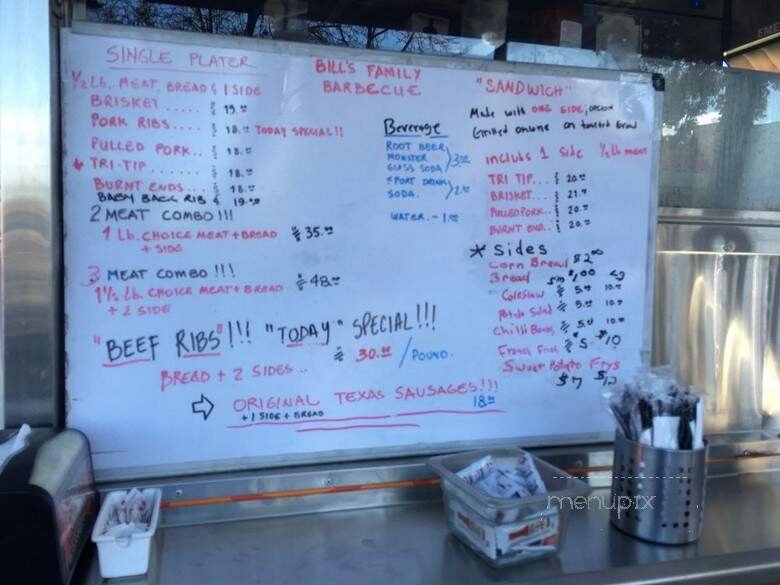 SINGLE PLATER
1/2 Lb. MEAT, BREAD & 1 SIDE
BRISKET..... $ 19.00
PORK RIBS.... $ 18.00 TODAY SPECIAL!!
PULLED PORK.. $ 18.00
TRI-TIP....... $ 18.00
BURNT ENDS... $ 18.00
BABY BACK RIB $ 19.00
2 MEAT COMBO!!!
1 Lb. CHOICE MEAT + BREAD $ 35.00
+ SIDE
3 MEAT COMBO!!!
1 1/2 Lb. CHOICE MEAT + BREAD $ 48.00
+ 2 SIDE
BILL'S FAMILY
BARBECUE
Beverage
ROOT BEER
MONSTER
GLASS SODA 3.00
SPORT DRINK
SODA. 2.00
WATER. - 1.00
"SANDWICH"
Made with ONE SIDE,
Grilled onions on toasted Bread
includs 1 Side 1/2 Lb meat
TRI TIP... $ 20.00
BRISKET... $ 21.00
PULLED PORK.. $ 20.00
BURNT END.. $ 20.00
* Sides
Corn Bread $2.00
Bread $1.00
Coleslaw $ 5.00 10.00
Potato Salad $ 5.00 10.00
Chilli Beans $ 5.00 10.00
Frences Fries $5 - $10
Sweet Potato Frys
$7 $12
"BEEF RIBS"!!! "TODAY" SPECIAL!!!
$ 30.00 / POUND.
BREAD + 2 SIDES...
ORIGINAL TEXAS SAUSAGES!!!
+ 1 SIDE + BREAD 18.00
menupix